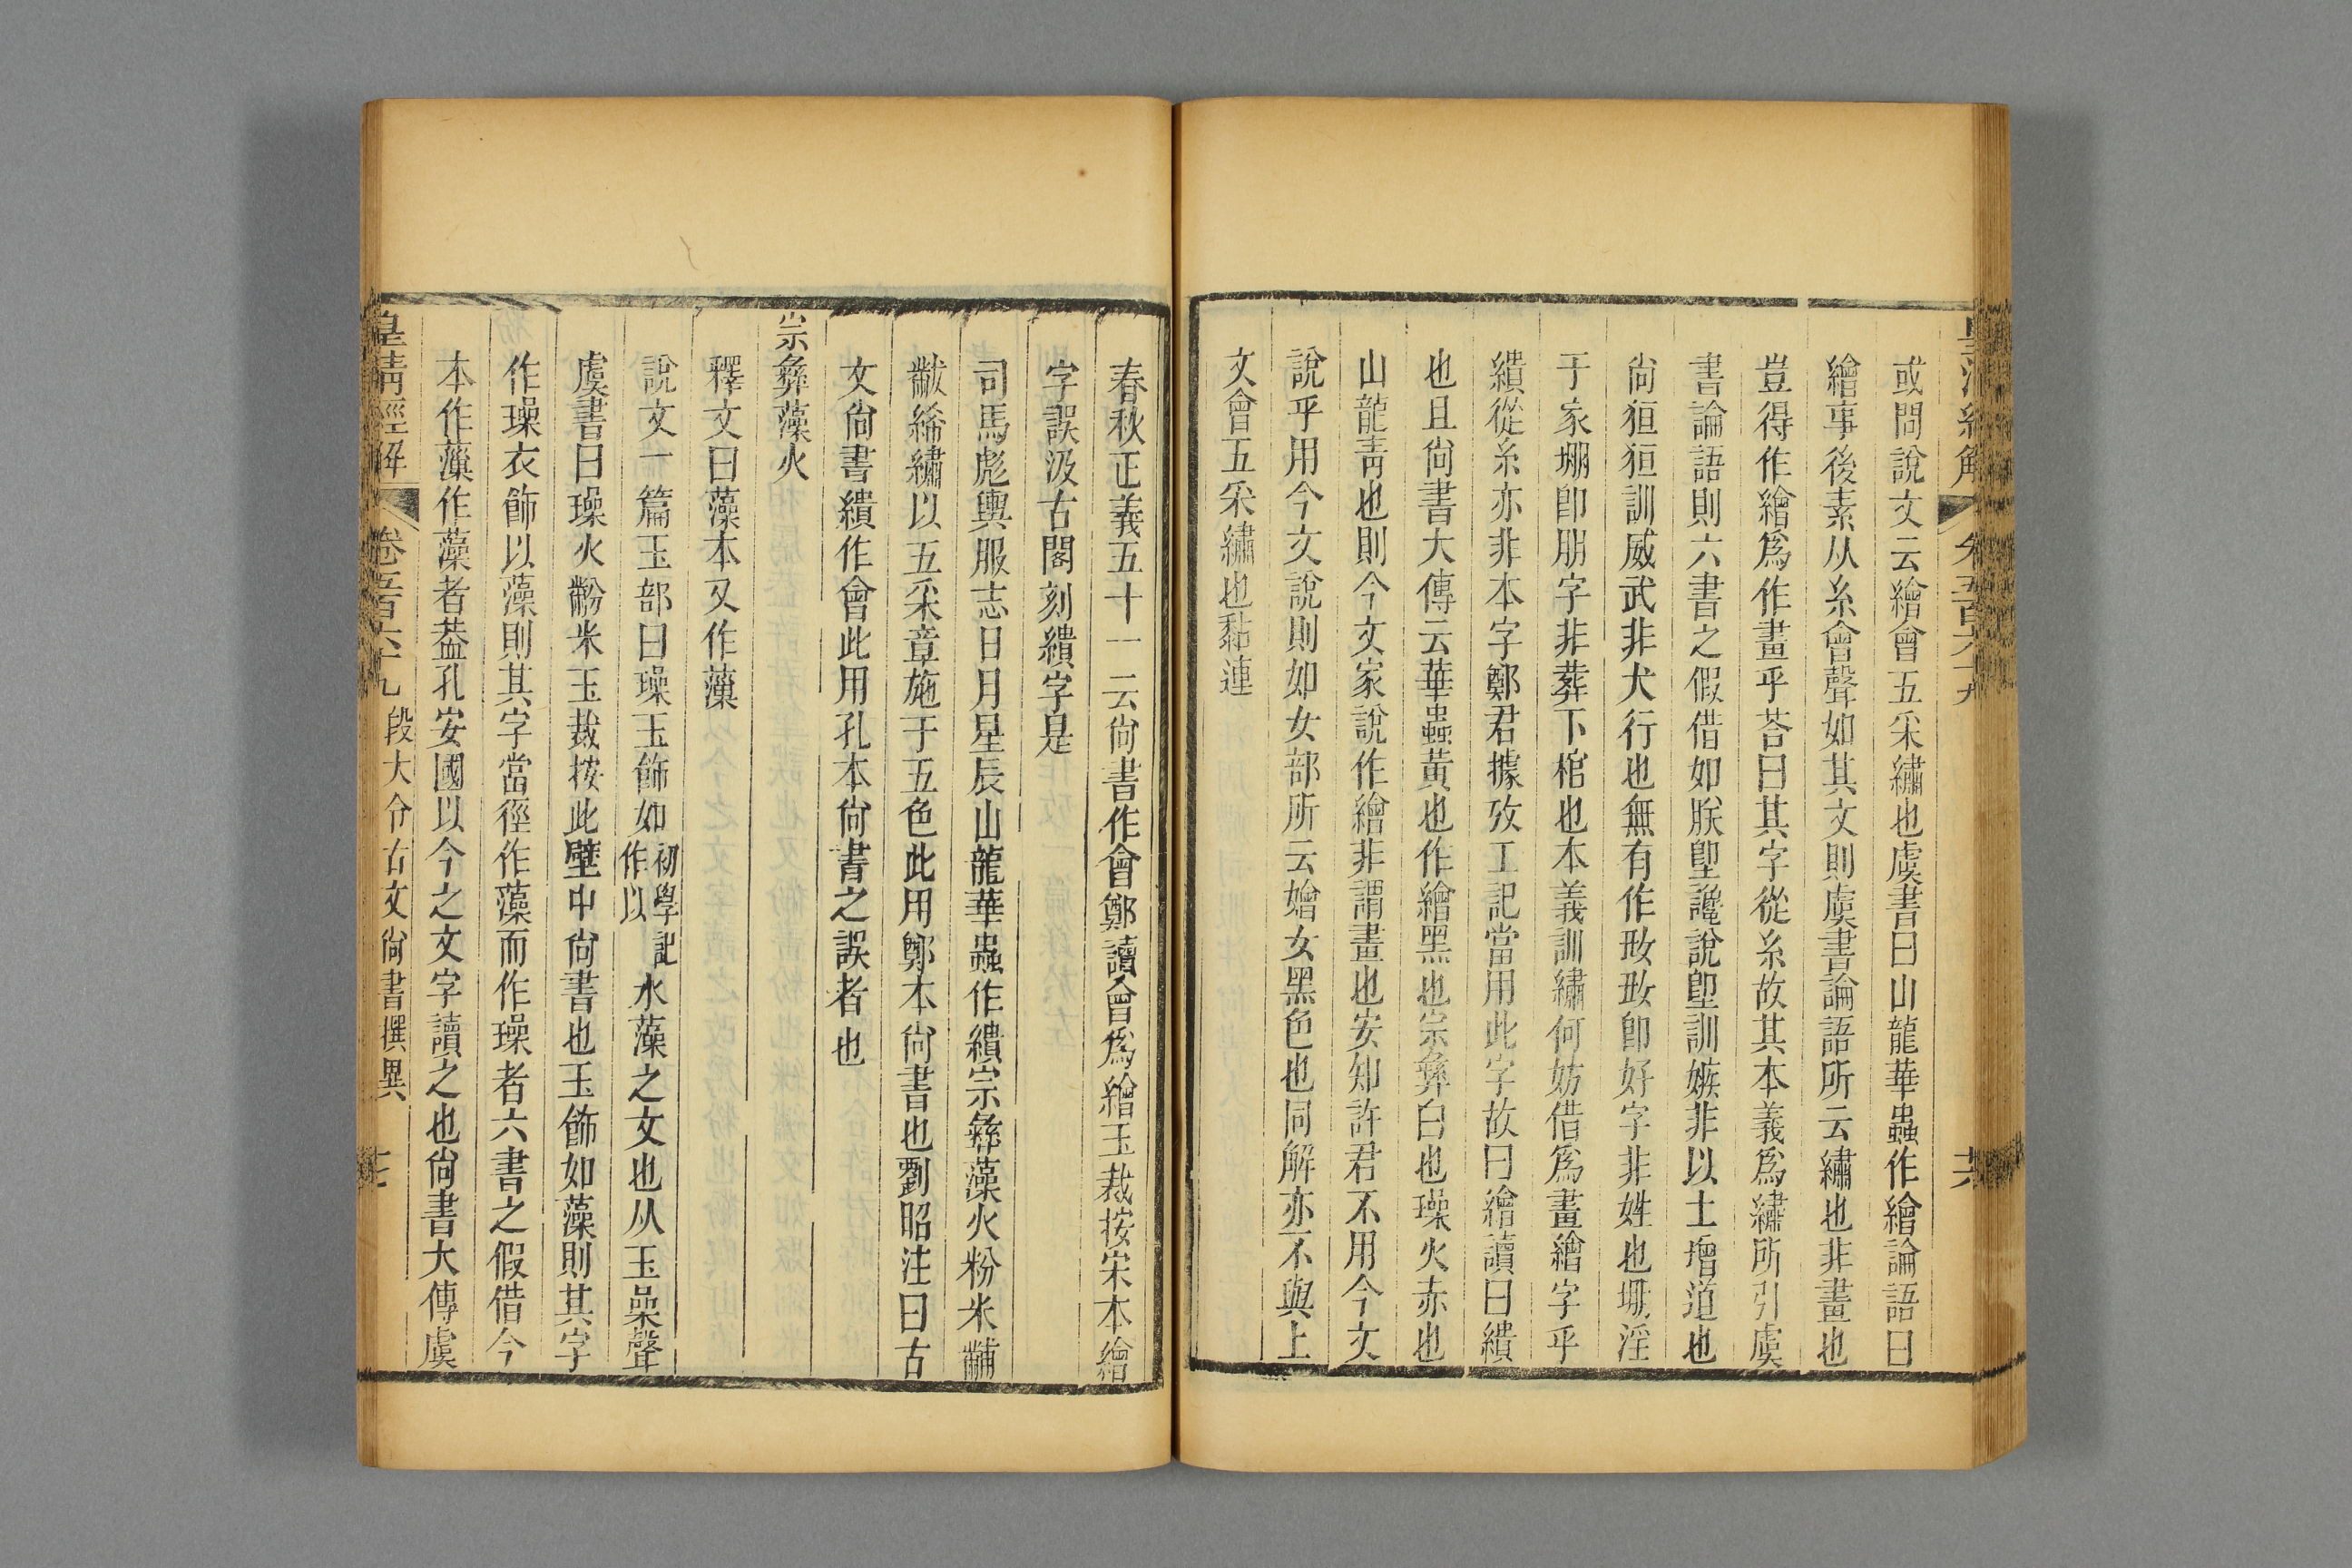 皇清經解
卷五百六十九
十六
或問說文云繪會五采繡也虞書曰山龍華蟲作繪論語曰
繪事後素从糸會聲如其文則虞書論語所云繡也非畫也
豈得作繪爲作畫乎荅曰其字從糸故其本義爲繡所引虞
書論語則六書之假借如朕堲讒說堲訓嫉非以土增道也
尙狟狟訓威武非犬行也無有作𡚽𡚽卽好字非姓也堋淫
于家堋卽朋字非葬下棺也本義訓繡何妨借爲畫繪字乎
繢從糸亦非本字鄭君據攷工記當用此字故曰繪讀曰繢
也且尙書大傳云華蟲黃也作繪黑也宗彝白也璪火赤也
山龍靑也則今文家說作繪非謂畫也安知許君不用今文
說乎用今文說則如女部所云嬒女黑色也同解亦不與上
文會五采繡也黏連
春秋正義五十一云尙書作會鄭讀會爲繪玉裁按宋本繪
字誤汲古閣刻繢字是
司馬彪輿服志日月星辰山龍華蟲作繢宗彝藻火粉米黼
黻絺繡以五采章施于五色此用鄭本尙書也劉昭注曰古
文尙書繢作會此用孔本尙書之誤者也
宗彝藻火
釋文曰藻本又作薻
說文一篇玉部曰璪玉飾如初學記作以水藻之文也从玉喿聲
虞書曰璪火黺米玉裁按此壁中尙書也玉飾如藻則其字
作璪衣飾以藻則其字當徑作藻而作璪者六書之假借今
本作薻作藻者葢孔安國以今之文字讀之也尙書大傳虞
皇清經解
卷五百六十九
段大令古文尙書撰異
十七